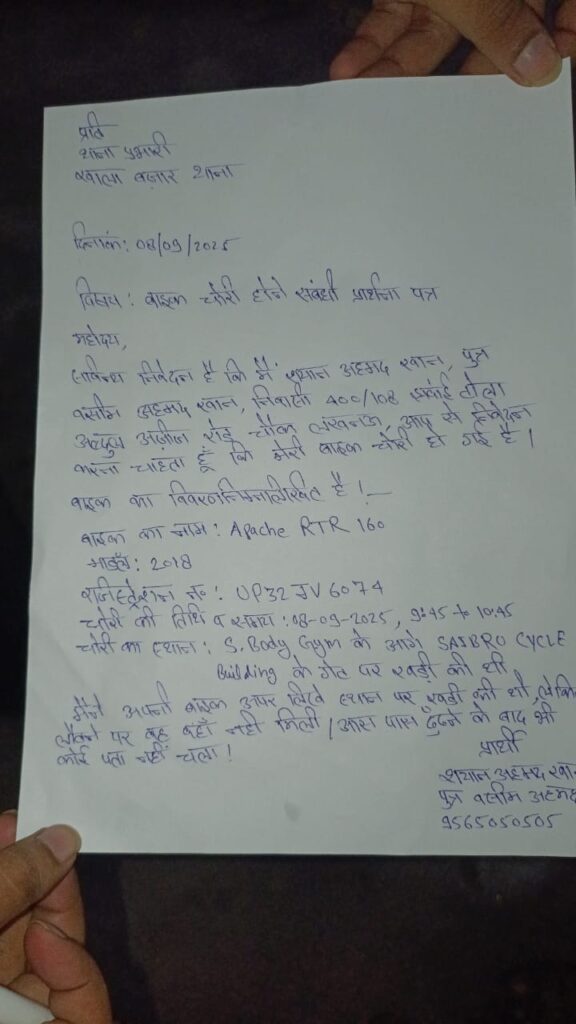 प्रति
थाना प्रभारी
बाज़ार थाना
दिनांक: 08/09/2025
विषय: बाइक चोरी होने संबंधी प्रार्थना पत्र
महोदय,
निवेदन है कि मैं अहमद खान, पुत्र
वसीम अहमद खान, निवासी 400/108 टोला
अब्दुल अज़ीज रोड चौक लखनऊ, आप से निवेदन
करना चाहता हूँ कि मेरी बाइक चोरी हो गई है।
बाइक का विवरण निम्नलिखित है!—
बाइक का नाम: Apache RTR 160
माडल: 2018
रजिस्ट्रेशन नं०: UP32 JV 6074
चोरी की तिथि व समय: 08-09-2025, 9:45 to 10:45
चोरी का स्थान: S. Body Gym के आगे SAIBRO CYCLE
Building के गेट पर खड़ी की थी
मैंने अपनी बाइक ऊपर लिखे स्थान पर खड़ी की थी लेकिन
लौटने पर वह वहाँ नहीं मिली। आस पास ढूंढने के बाद भी
कोई पता नहीं चला!
प्रार्थी
अहमद खान
पुत्र वसीम अहमद
9565050505